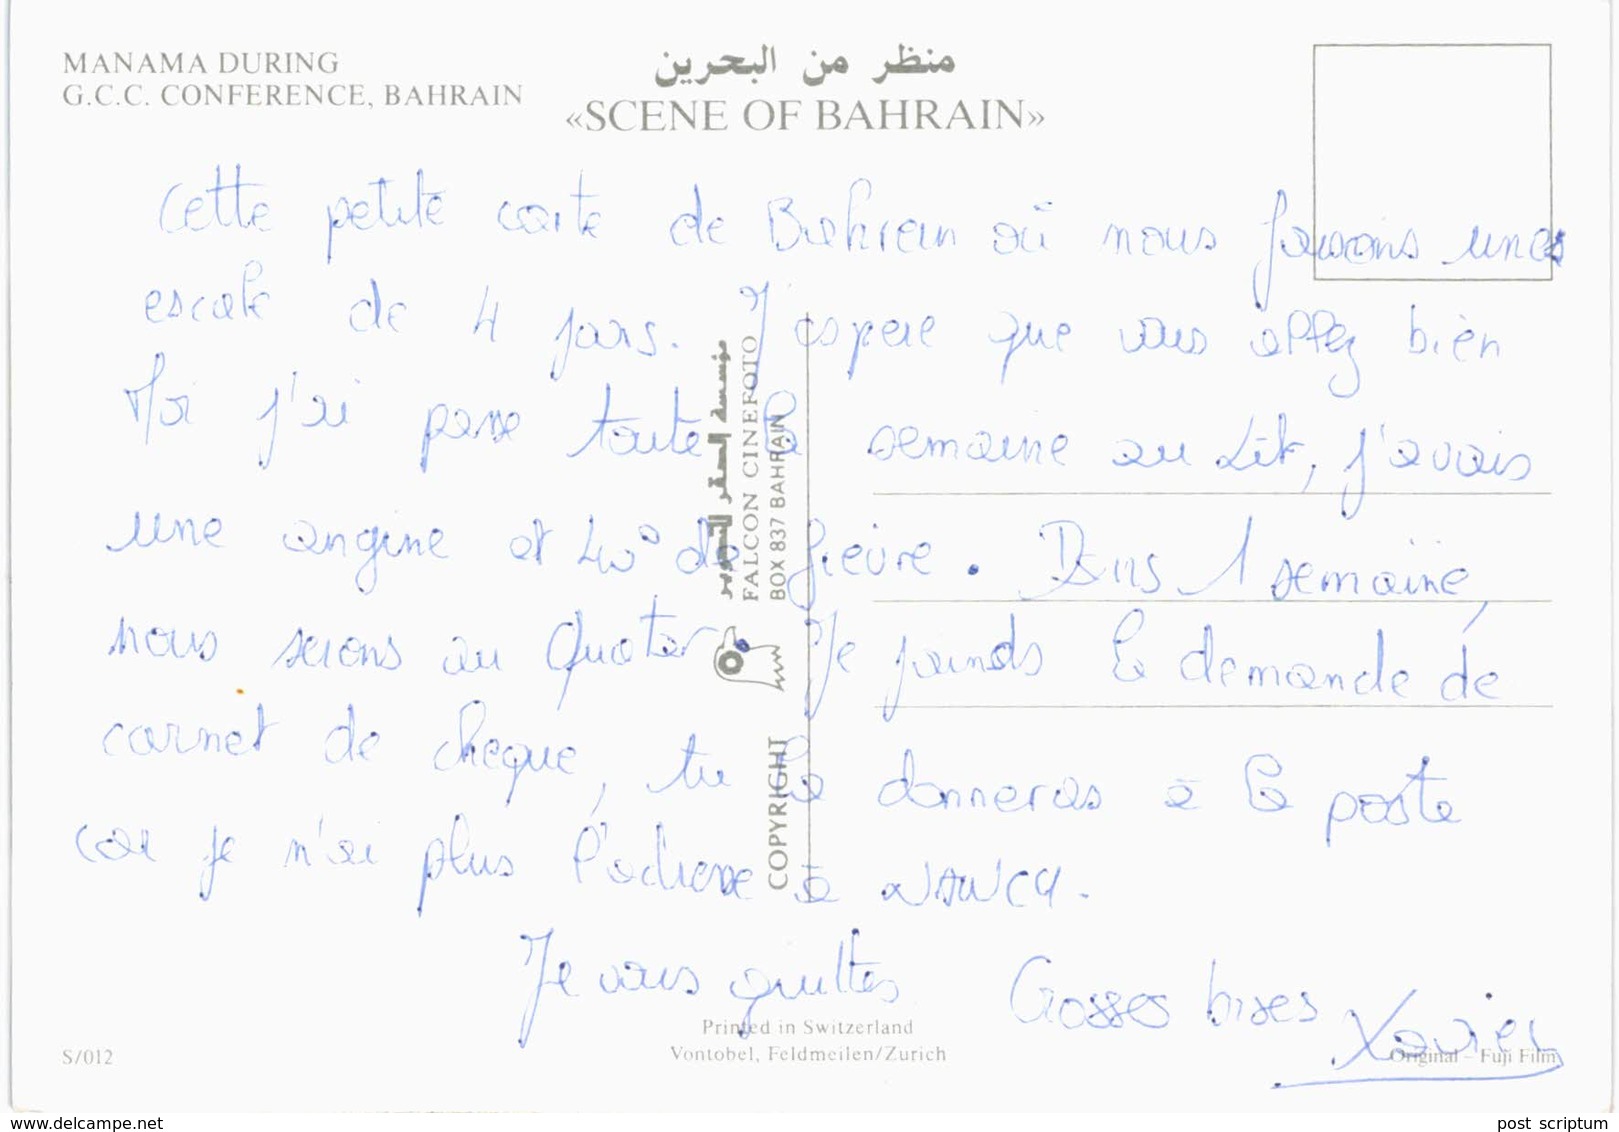 MANAMA DURING
G.C.C. CONFERENCE, BAHRAIN
منظر من البحرين
«SCENE OF BAHRAIN»
Cette petite carte de Bahrein où nous faisons une
escale de 4 jours. J'espere que vous allez bien
Moi j'ai passe toute la semaine au Lit, j'avais
une angine et 40° de fievre. Dans 1 semaine,
nous serons au Quatar. Je joinds la demande de
carnet de cheque, tu la donneras à la poste
car je n'ai plus l'adresse à NANCY.
Je vous quittes Grosses bises
Xavier
مؤسسة الصقر للتصوير
FALCON CINEFOTO
BOX 837 BAHRAIN
COPYRIGHT
Printed in Switzerland
Vontobel, Feldmeilen/Zurich
S/012
Original – Fuji Film
delcampe.net
post_scriptum